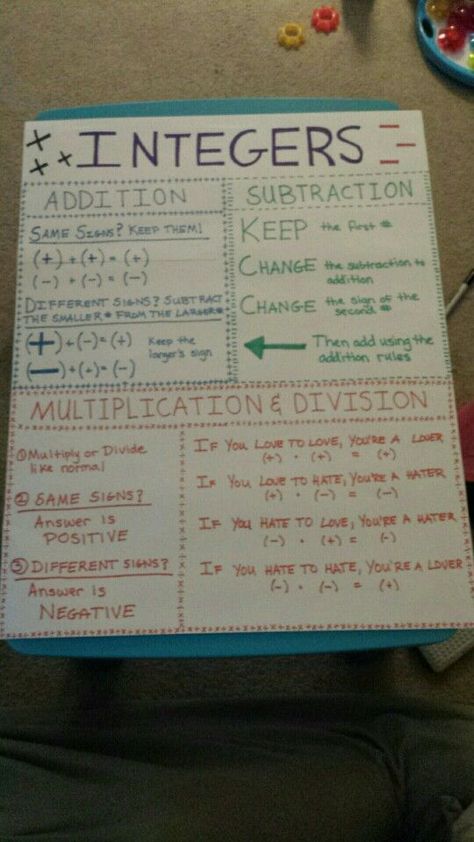 INTEGERS
ADDITION
SAME SIGNS? KEEP THEM!
(+) + (+) = (+)
(-) + (-) = (-)
DIFFERENT SIGNS? SUBTRACT
THE SMALLER # FROM THE LARGER #
(+)+(-)=(+)
(-)+(+)=(-)
Keep the
larger's sign
SUBTRACTION
KEEP the first #
CHANGE the subtraction to
addition
CHANGE the sign of the
second #
Then add using the
addition rules
MULTIPLICATION & DIVISION
① Multiply or Divide
like normal
② SAME SIGNS?
Answer is
POSITIVE
③ DIFFERENT SIGNS?
Answer is
NEGATIVE
IF YOU LOVE TO LOVE, YOU'RE A LOVER
(+) · (+) = (+)
IF YOU LOVE TO HATE, YOU'RE A HATER
(+) · (-) = (-)
IF YOU HATE TO LOVE, YOU'RE A HATER
(-) · (+) = (-)
IF YOU HATE TO HATE, YOU'RE A LOVER
(-) · (-) = (+)